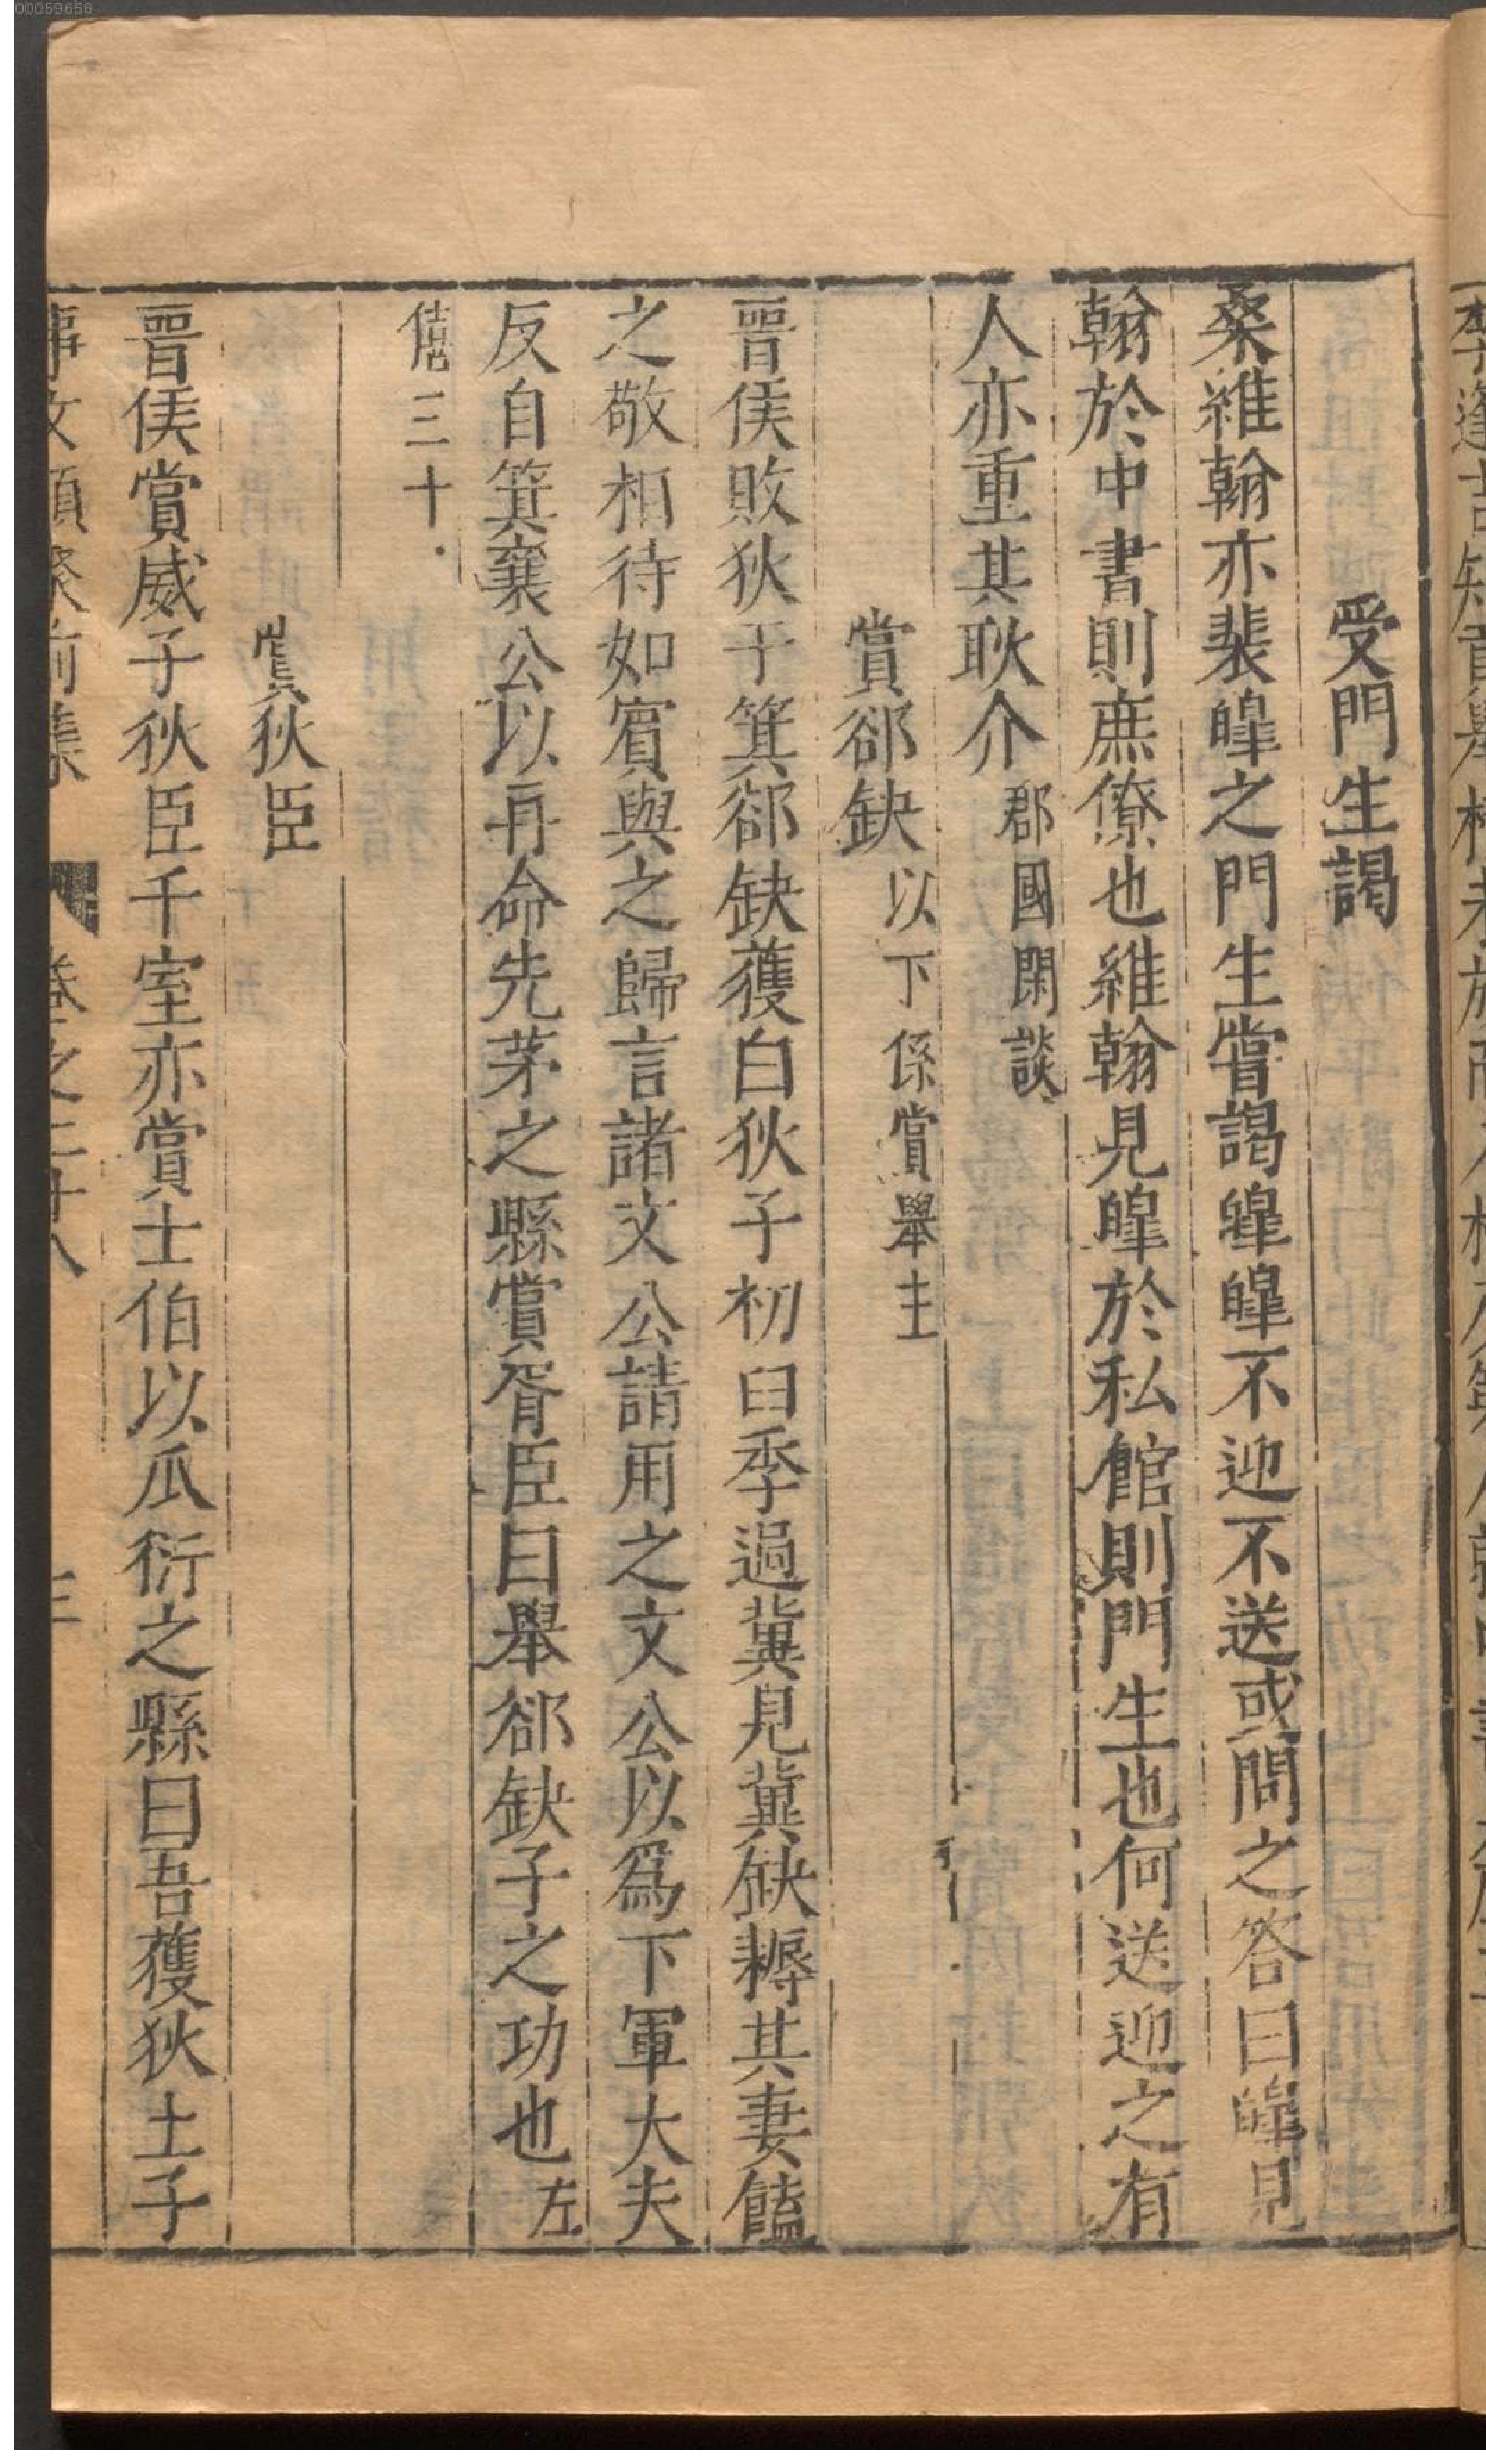 00059658
受門生謁
桑維翰亦裴皥之門生嘗謁皥皥不迎不送或問之答曰皥見
翰於中書則庶僚也維翰見皥於私館則門生也何送迎之有
人亦重其耿介 郡國閑談
賞郤缺 以下係賞舉主
晉侯敗狄于箕郤缺獲白狄子初臼季過冀見冀缺耨其妻饁
之敬相待如賓與之歸言諸文公請用之文公以爲下軍大夫
反自箕襄公以再命先茅之縣賞胥臣曰舉郤缺子之功也 左
僖三十
賞狄臣
晉侯賞威子狄臣千室亦賞士伯以瓜衍之縣曰吾獲狄土子
事文類聚前集 卷之三十八 三